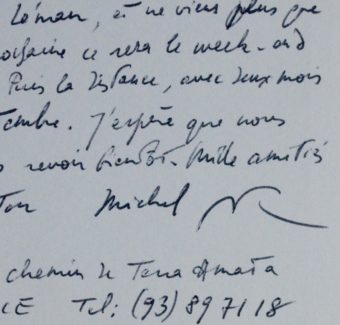 Léman, et ne viens plus que
ochaine ce sera le week-end
Puis la distance, avec deux mois
tembre. J'espère que nous
s revoir bientôt. Mille amitiés
Ton Michel
chemin de Terra Amata
CE Tel: (93) 89 71 18